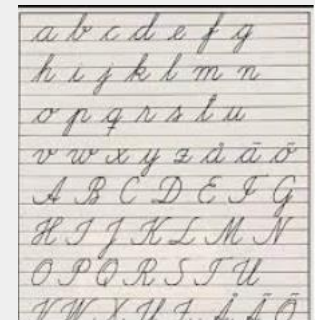 a b c d e f g
h i j k l m n
o p q r s t u
v w x y z å ä ö
A B C D E F G
H I J K L M N
O P Q R S T U
V W X Y Z Å Ä Ö